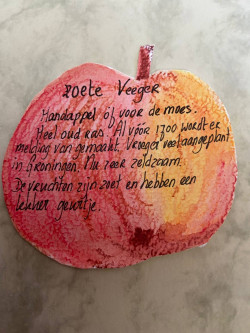 zoete Veeger
Handappel óf voor de moes.
Heel oud ras. Al vóór 1700 wordt er
melding van gemaakt. Vroeger veel aangeplant
in Groningen. Nu zeer zeldzaam.
De vruchten zijn zoet en hebben een
lekker geurtje.